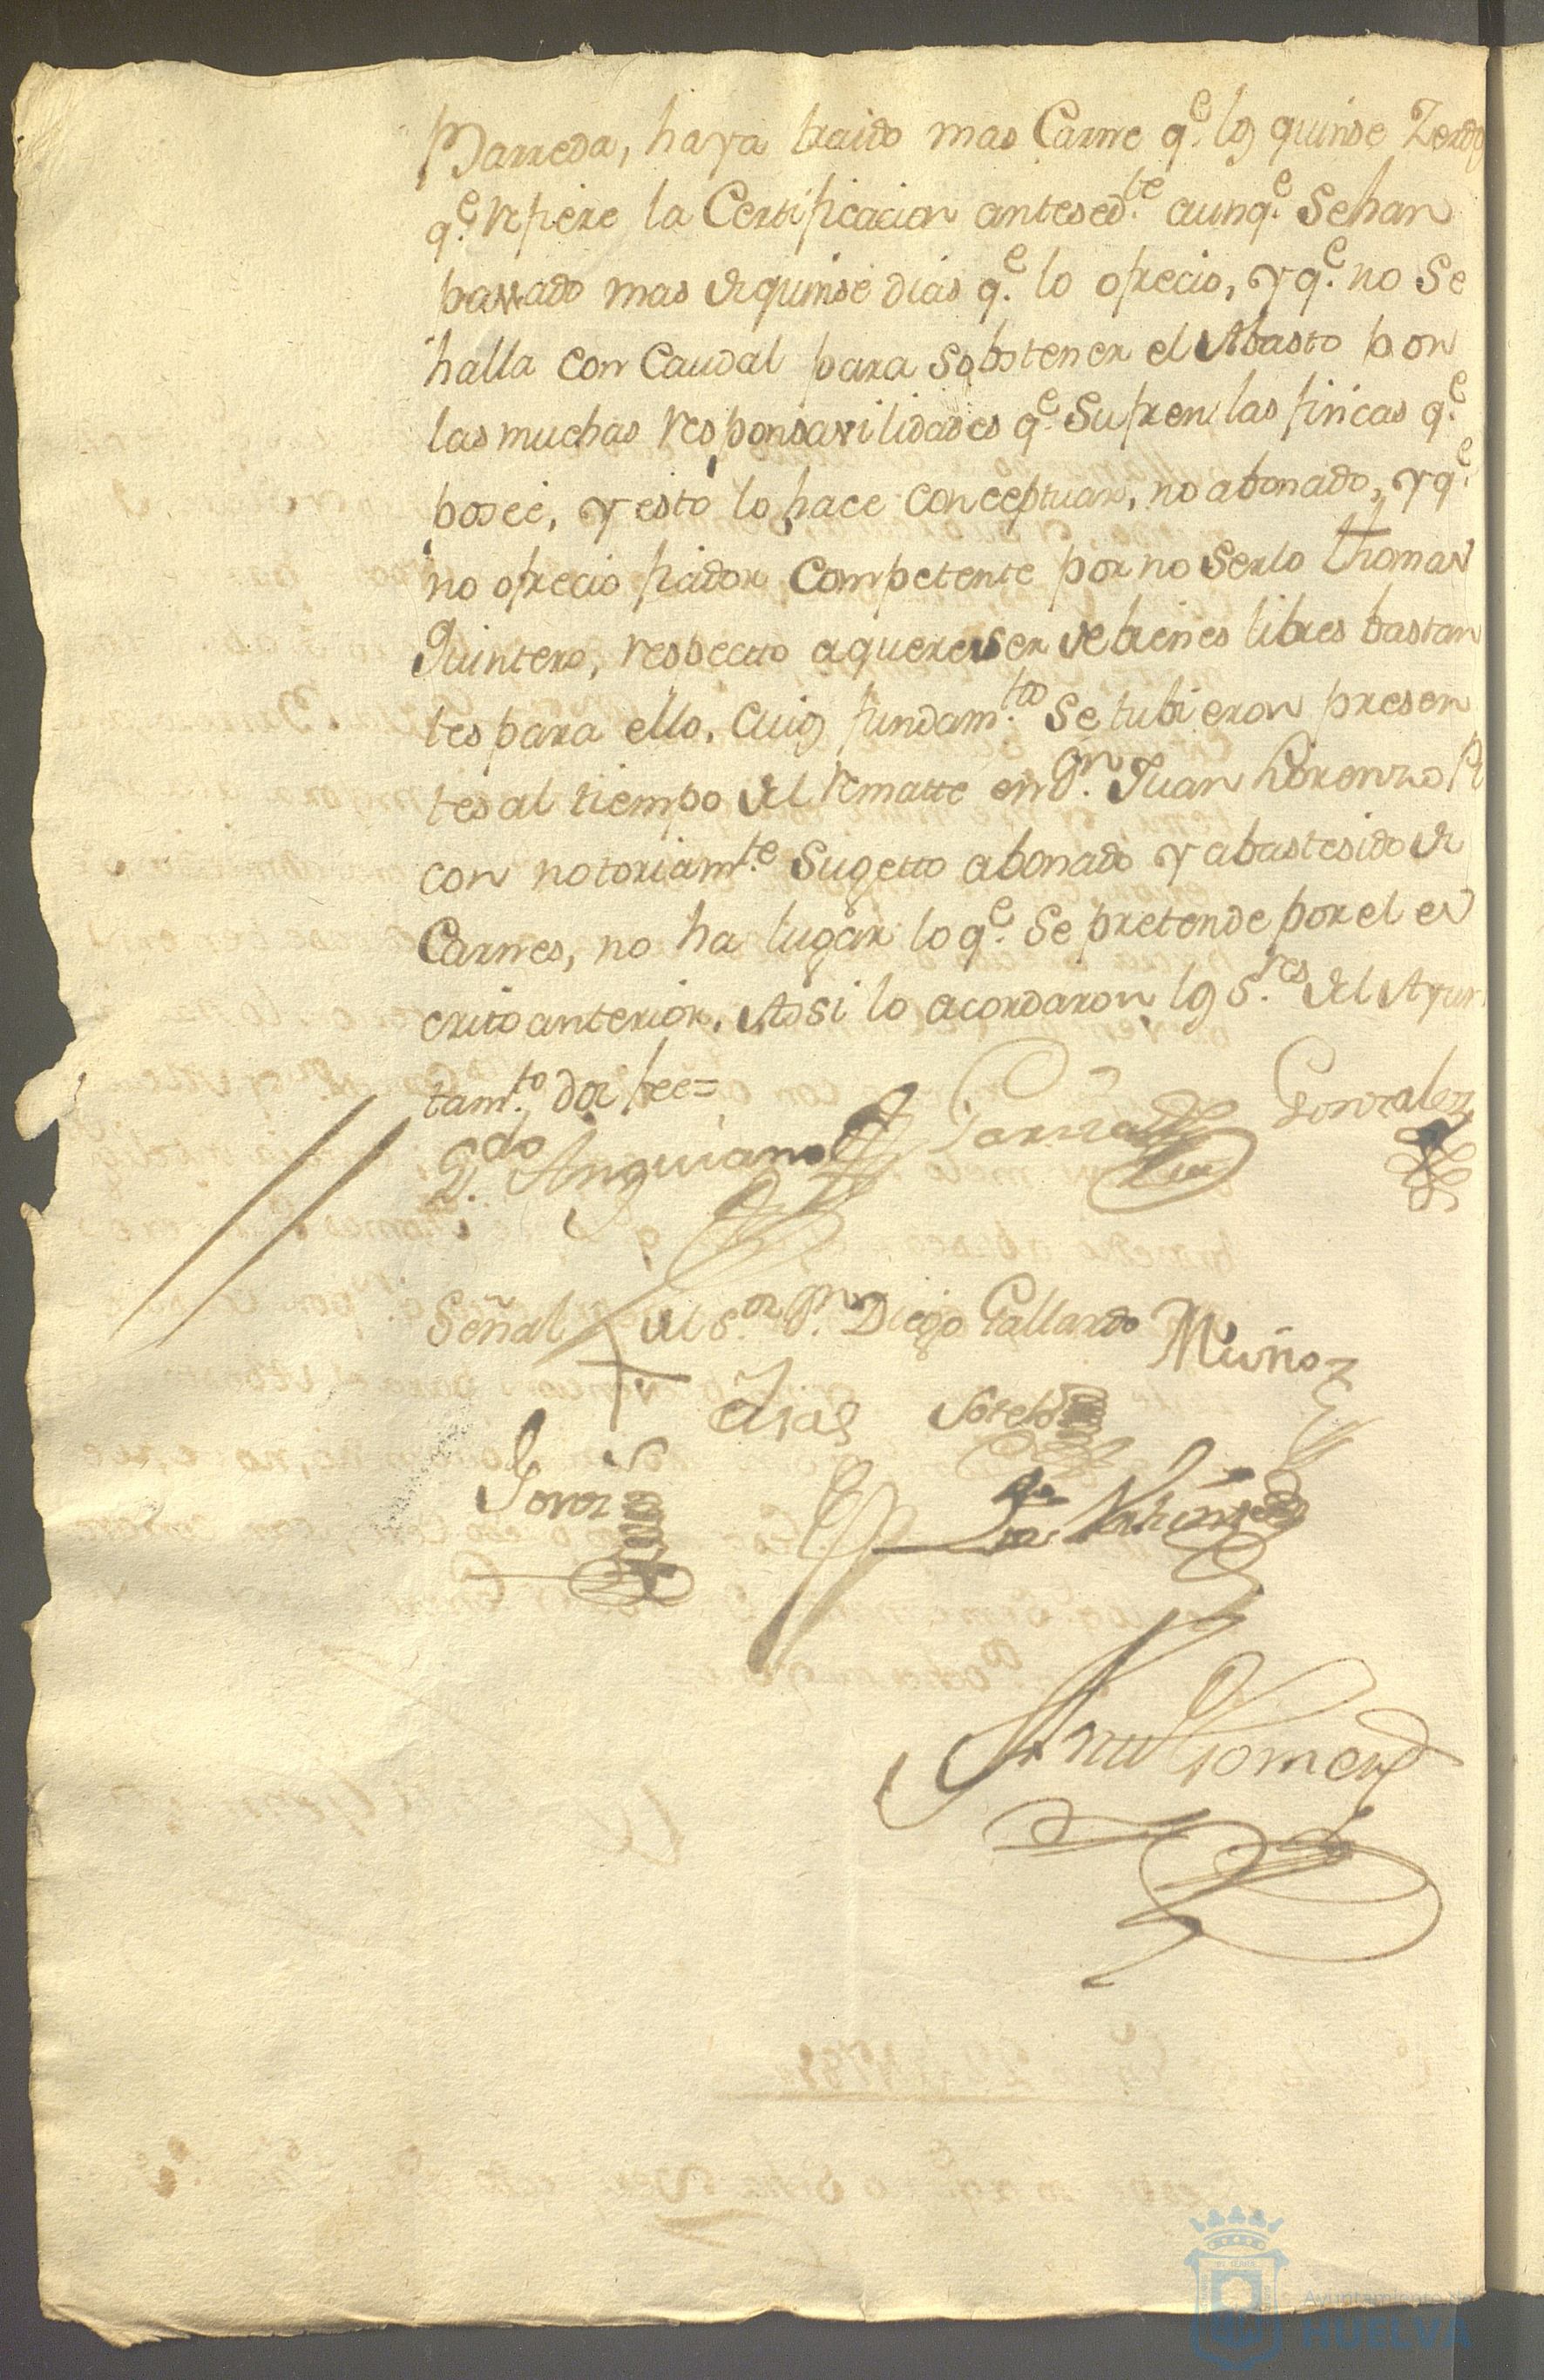 Barreda, haya traido mas Carne q.e los quinse Zerdos
q.e refiere la Certificacion antesed.te aunq.e Sehan
passado mas de quinse dias q.e lo ofrecio, y q.e no Se
halla con Caudal para Sobstener el Abasto por
las muchas responsavilidades q.e Sufren las fincas q.e
posee, y esto lo hace conceptuar, no abonado, y q.e
no ofrecio fiador Competente por no Serlo Thomas
Quintero, respecto a
de bienes libres bastan
tes para ello. Cuios fundam.tos Se tubieron presen
tes al tiempo del rematte en D.n Juan Lorenzo Ri
con notoriam.te Sugetto abonado y abastesido de
Carnes, no ha lugar lo q.e Se pretende por el es
crito anterior. Assi lo acordaron los S.res del Ayun
tam.to doi fee=
L.do Anguiano Garzia Gonzalez
Señal del S.or D.n Diego Gallardo Muñoz
Sotelo
Gomez
Ayuntamiento de
HUELVA